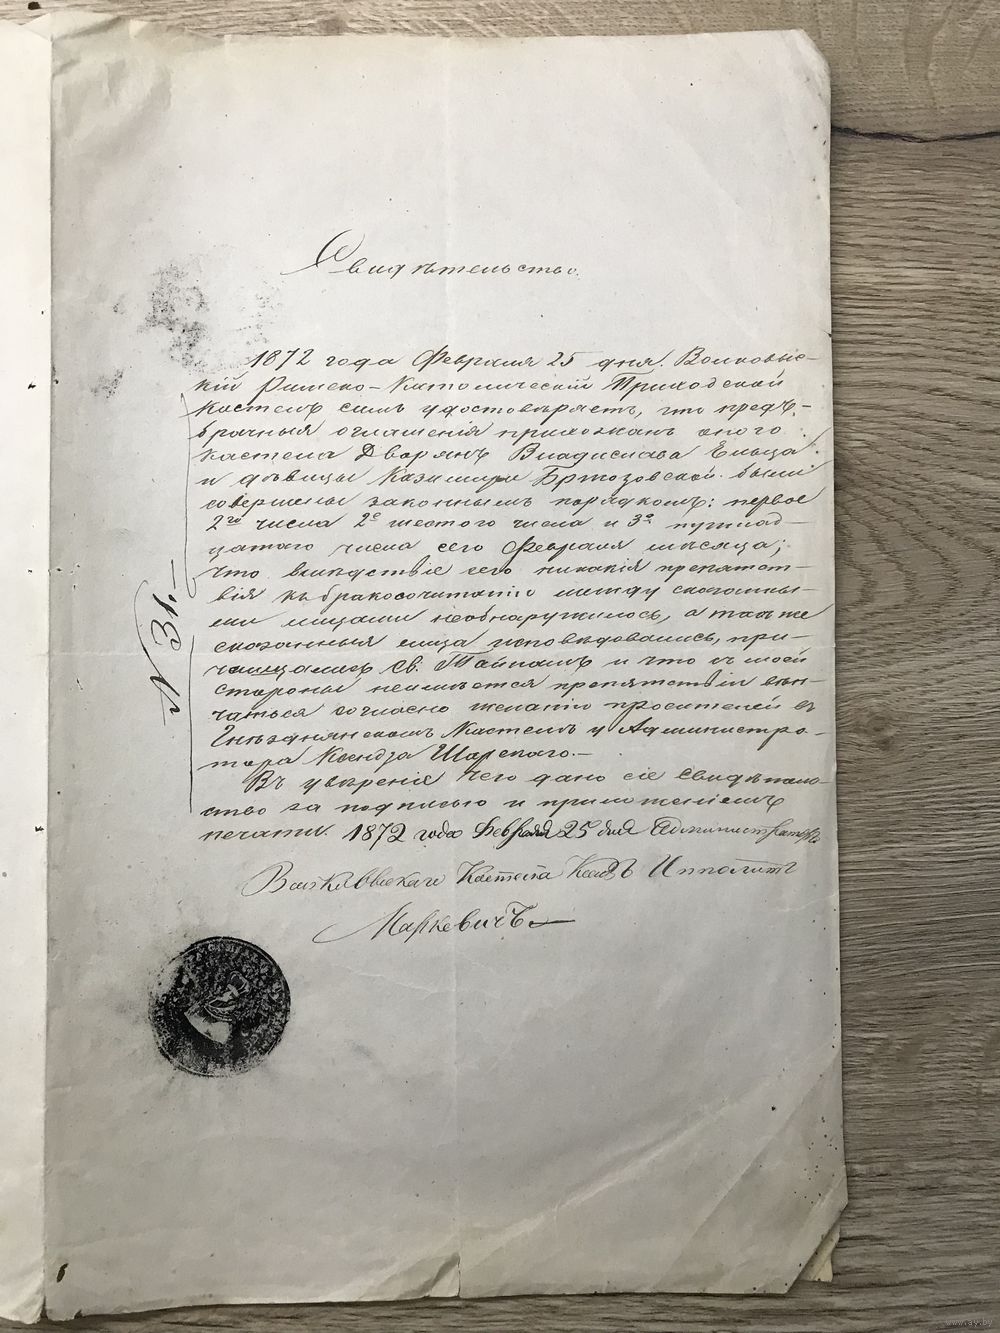 Свидѣтельство.
1872 года Февраля 25 дня. Волковыс-
кій Римско-Католическій Приходской
Костелъ симъ удостовѣряетъ, что предъ-
брачныя оглашенія прихожанъ оного
костела Дворянъ Владислава Ельца
и дѣвицы Казимиры Бржозовской были
совершены законнымъ порядкомъ: первое
2го числа 2е шестого числа и 3е пятнад-
цатаго числа сего Февраля мѣсяца;
что вслѣдствіе сего никакія препятст-
вія къ бракосочитанію между сказанны-
ми лицами необнаружилось, а также
сказанныя лица исповѣдовались, при-
чащались Св. Тайнамъ и что съ моей
стороны неимѣется препятствія вѣн-
чаться согласно желанію просителей въ
Гнѣзднянскомъ Костелѣ у Администра-
тора Ксендза Шарского.—
Въ увѣреніе чего дано сіе Свидѣтель-
ство за подписью и приложеніемъ
печати. 1872 года Февраля 25 дня Администраторъ
Волковыскаго Костела Ксендзъ Ипполитъ
Маркевичъ
№ 31.—
www.ay.by